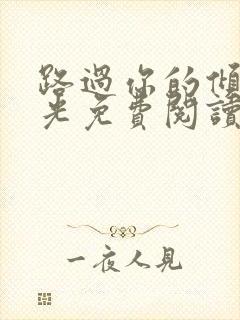 路過你的傾
光免費閱讀
一夜人見